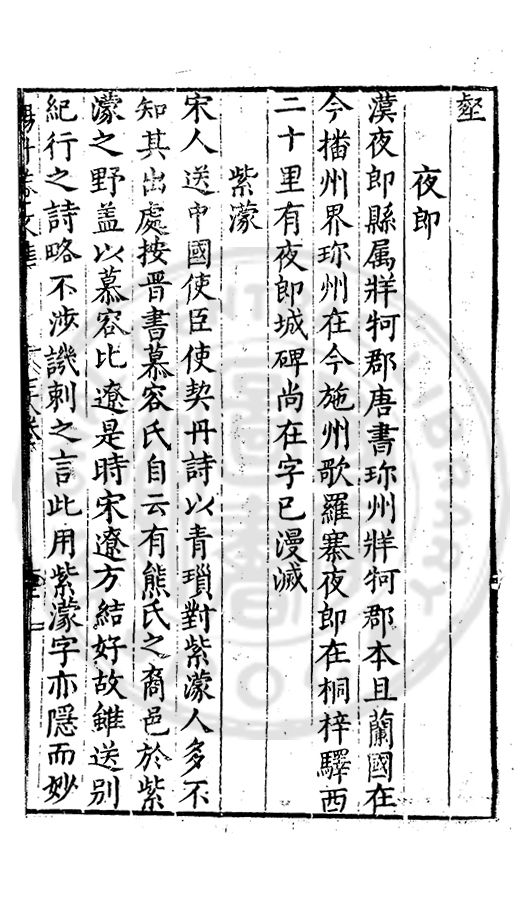 壑
夜郎
漢夜郎縣属牂牁郡唐書珎州牂牁郡本且蘭國在
今播州界珎州在今施州歌羅寨夜郎在桐梓驛西
二十里有夜郎城碑尚在字已漫滅
紫濛
宋人送中國使臣使契丹詩以青瑣對紫濛人多不
知其出處按晋書慕容氏自云有熊氏之裔邑於紫
濛之野盖以慕容比遼是時宋遼方結好故雖送别
紀行之詩略不涉譏刺之言此用紫濛字亦隠而妙